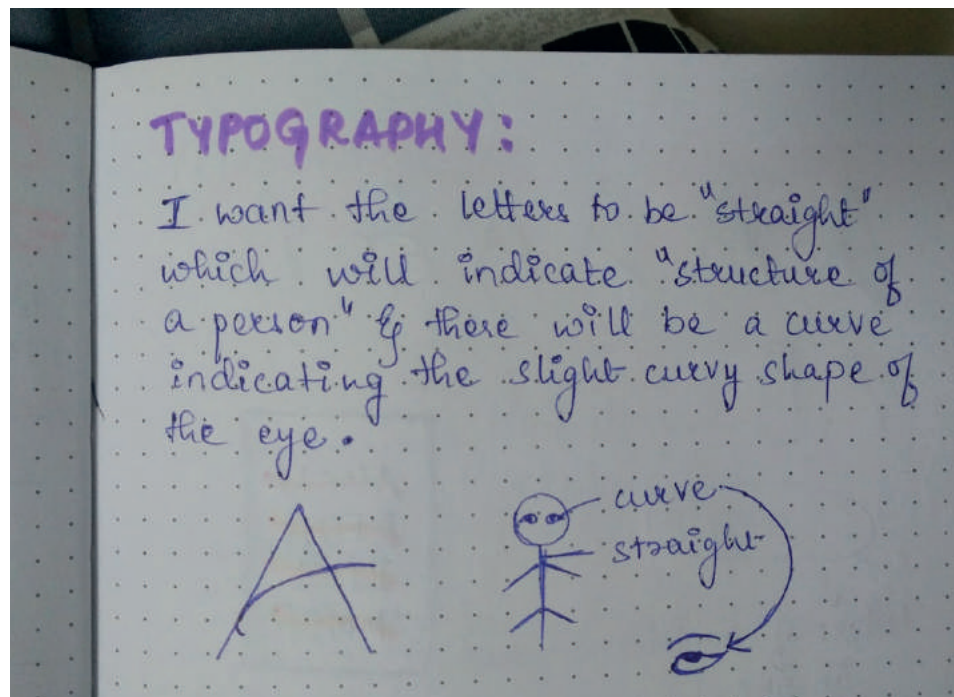 TYPOGRAPHY:
I want the letters to be "straight"
which will indicate "structure of
a person" & there will be a curve
indicating the slight curvy shape of
the eye.
A
curve
straight